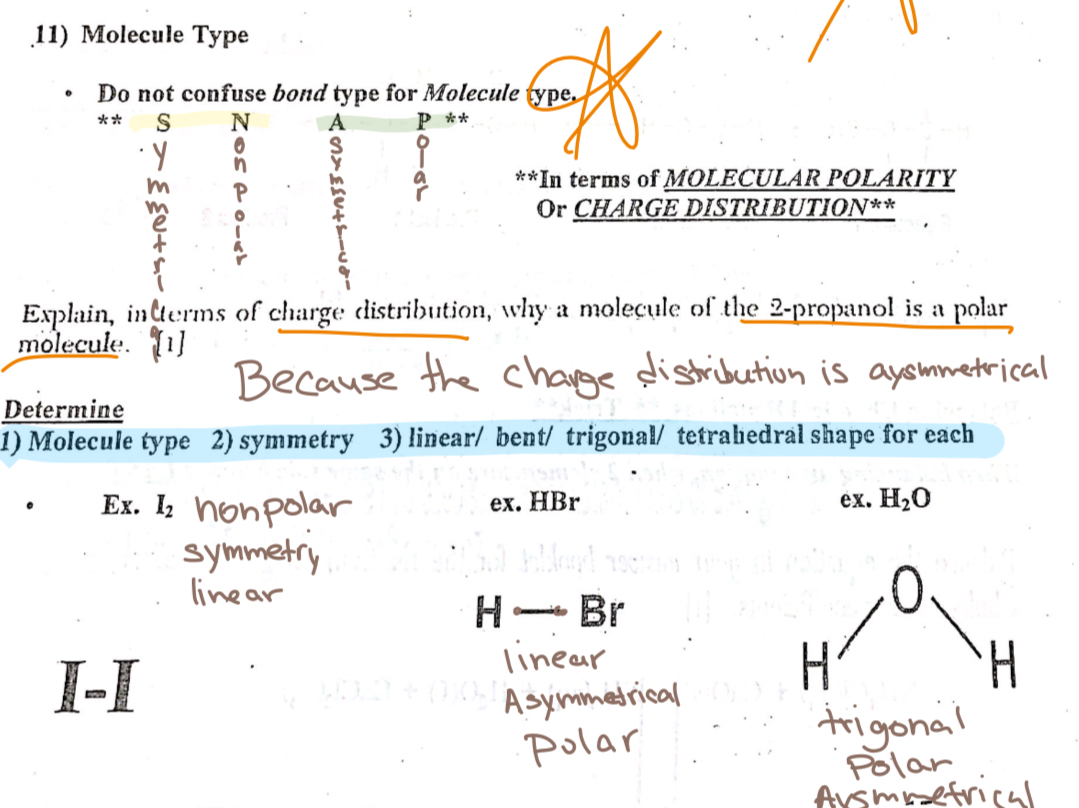 11) Molecule Type
• Do not confuse bond type for Molecule type.
** S N A P **
Symmetri Nonpolar Asymmetrical Polar
**In terms of MOLECULAR POLARITY
Or CHARGE DISTRIBUTION**
Explain, in terms of charge distribution, why a molecule of the 2-propanol is a polar
molecule. [1]
Because the charge distribution is aysmmetrical
Determine
1) Molecule type 2) symmetry 3) linear/ bent/ trigonal/ tetrahedral shape for each
• Ex. I₂ nonpolar ex. HBr ex. H₂O
symmetry
linear
H — Br
O
H H
I-I
linear
Asymmetrical
polar
trigonal
Polar
Aysmmetrical